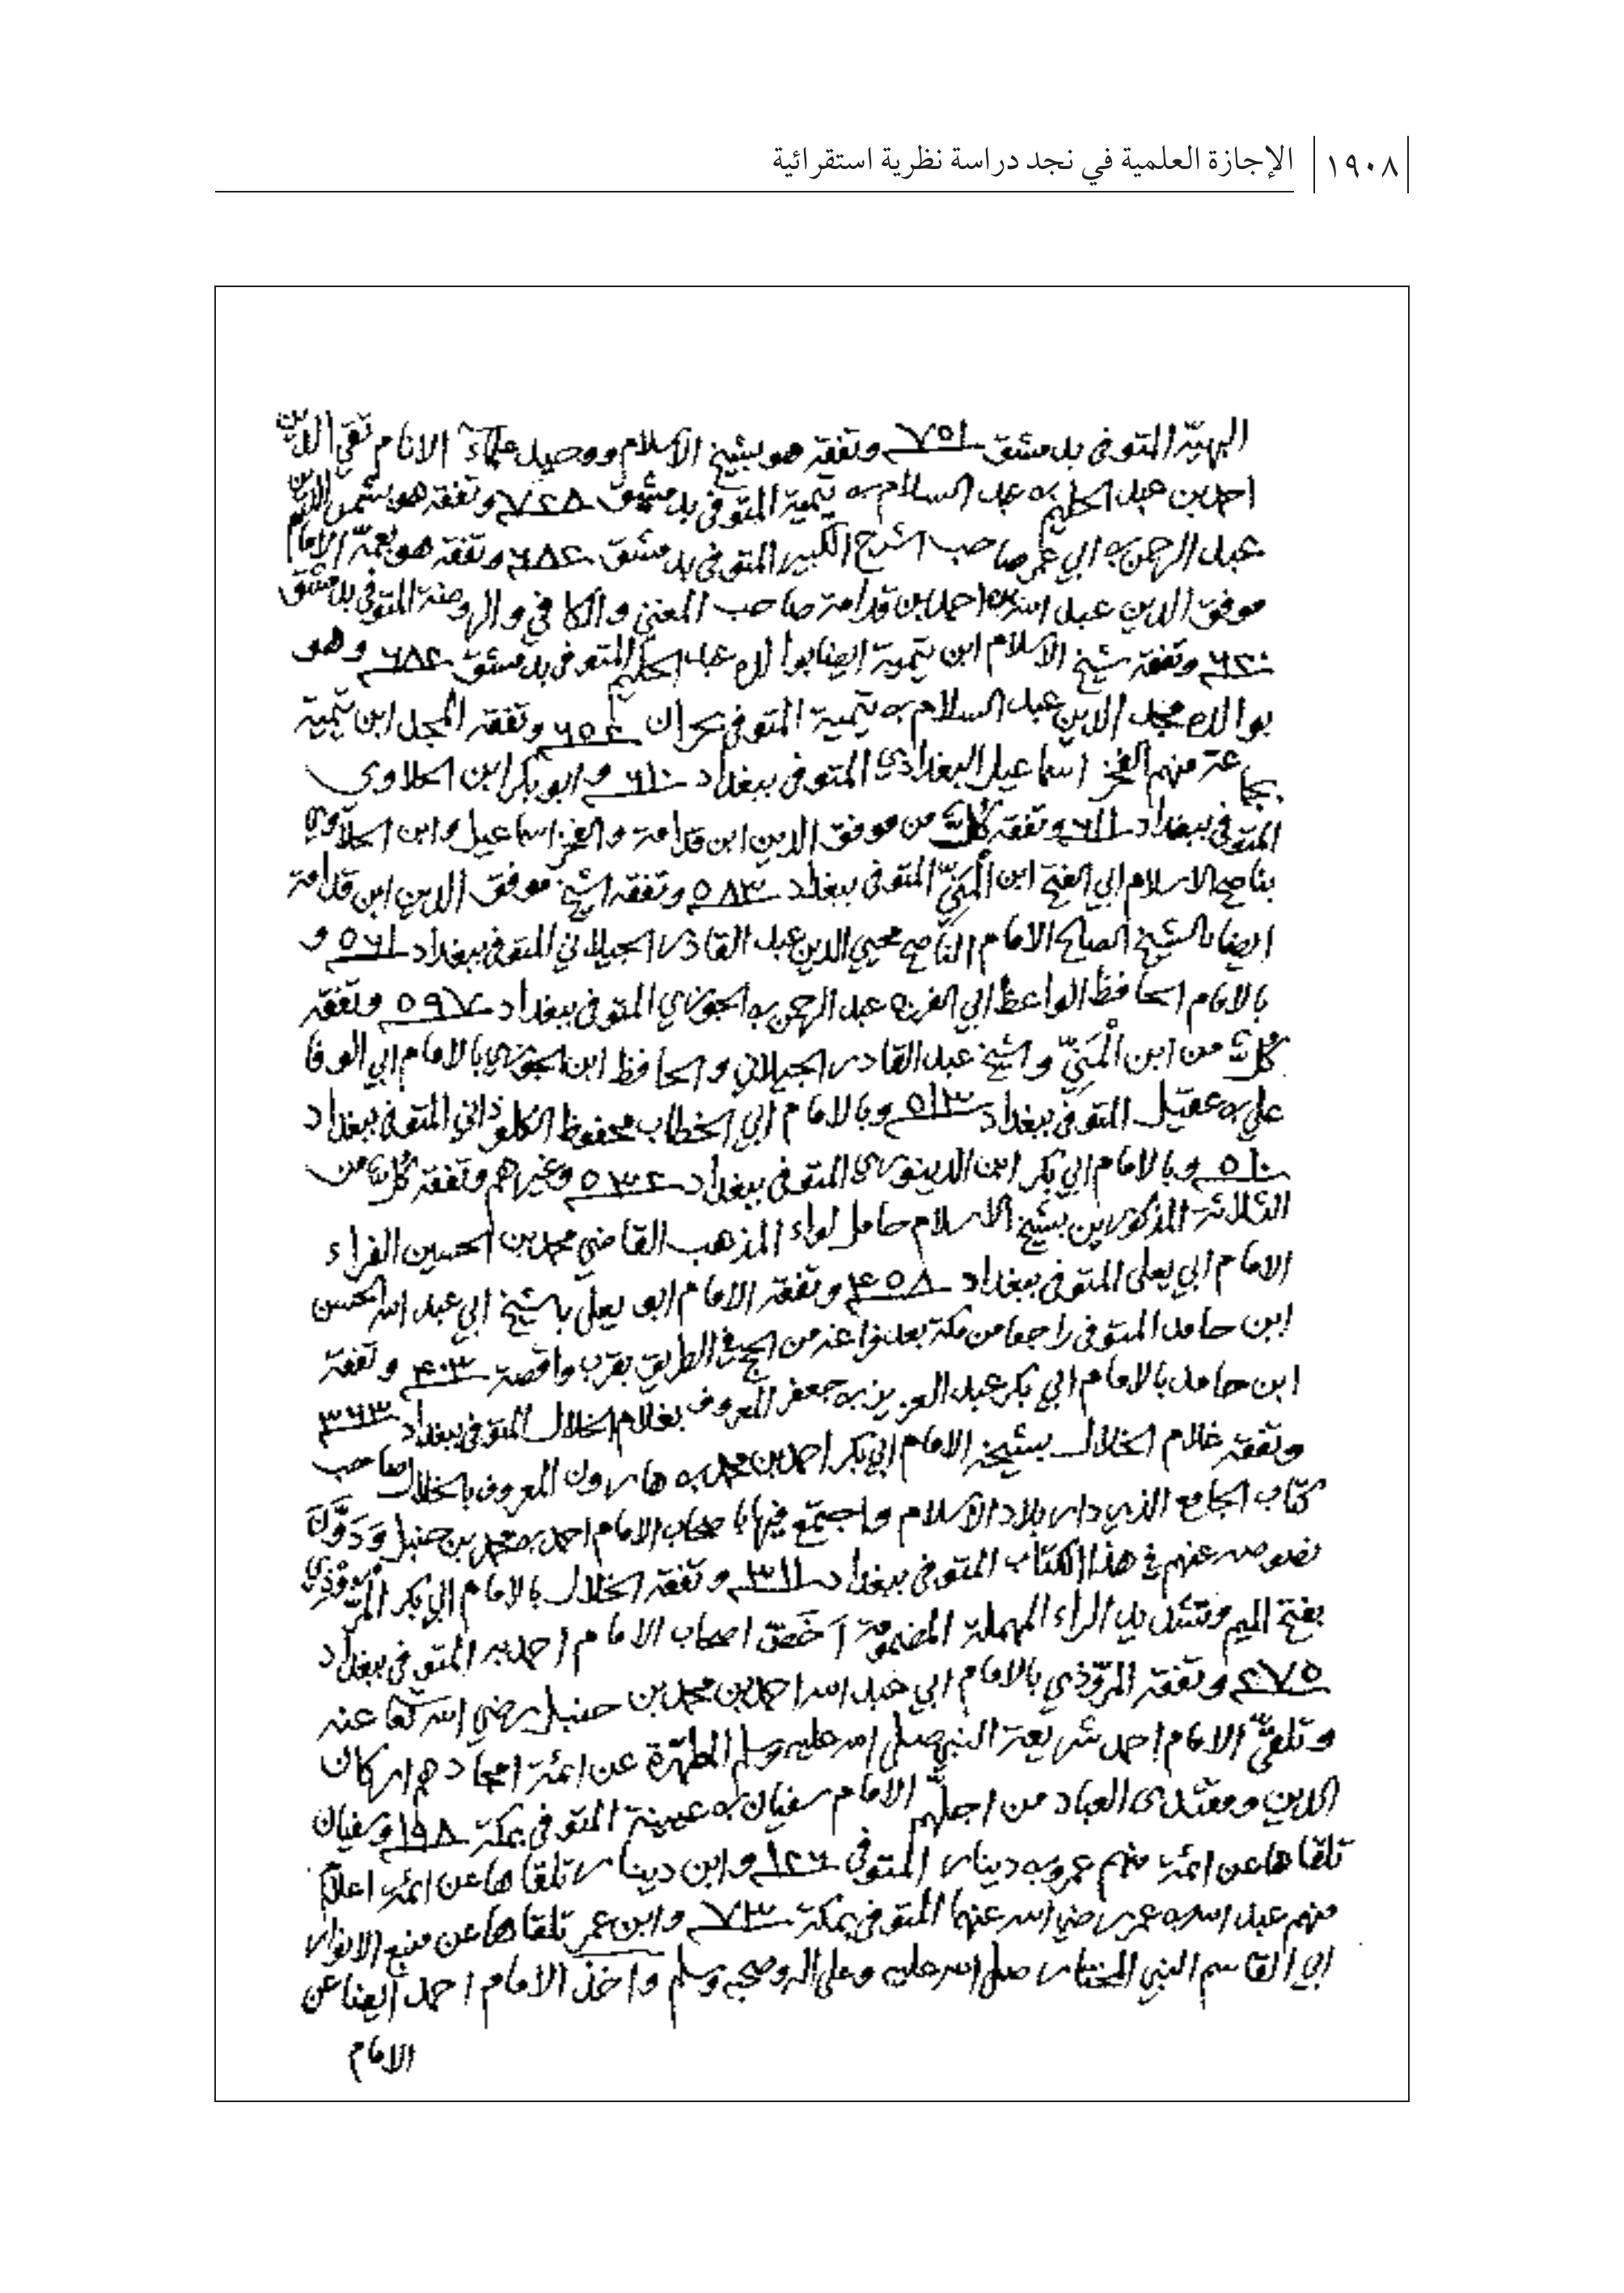 ١٩٠٨ الإجازة العلمية في نجد دراسة نظرية استقرائية
البهيّة المتوفى بدمشق ٧٥١ وتفقه هو بشيخ الاسلام ووحيد علماء الانام تقي الدين
احمد بن عبد الحليم بن عبد السلام بن تيمية المتوفى بدمشق ٧٢٨ وتفقه هو بشمس الدين
عبد الرحمن بن ابي عمر صاحب الشرح الكبير المتوفى بدمشق ٦٨٢ وتفقه هو بعمّه الامام
موفق الدين عبد الله بن احمد بن قدامة صاحب المغني والكافي والروضة المتوفى بدمشق
٦٢٠ وتفقه شيخ الاسلام ابن تيمية ايضا بوالده عبد الحليم المتوفى بدمشق ٦٨٢ وهو
بوالده مجد الدين عبد السلام بن تيمية المتوفى بحران ٦٥٢ وتفقه المجد ابن تيمية
بجماعة منهم الفخر اسماعيل البغدادي المتوفى ببغداد ٦١٠ وابو بكر ابن الحلاوي
المتوفى ببغداد ٦١١ وتفقه كلٌّ من موفق الدين ابن قدامة والفخر اسماعيل وابن الحلاوي
بناصح الاسلام ابي الفتح ابن المَنيّ المتوفى ببغداد ٥٨٣ وتفقه الشيخ موفق الدين ابن قدامة
ايضا بالشيخ الصالح الامام الناصح محيي الدين عبد القادر الجيلاني المتوفى ببغداد ٥٦١ و
بالامام الحافظ الواعظ ابي الفرج عبد الرحمن بن الجوزي المتوفى ببغداد ٥٩٧ وتفقه
كلٌّ من ابن المَنيّ والشيخ عبد القادر الجيلاني والحافظ ابن الجوزي بالامام ابي الوفا
علي بن عقيل المتوفى ببغداد ٥١٣ وبالامام ابي الخطاب محفوظ الكلوذاني المتوفى ببغداد
٥١٠ وبالامام ابي بكر ابن الدينوري المتوفى ببغداد ٥٣٢ وغيرهم وتفقه كلٌّ من
الثلاثة المذكورين بشيخ الاسلام حامل لواء المذهب القاضي محمد بن الحسين الفراء
الامام ابي يعلى المتوفى ببغداد ٤٥٨ وتفقه الامام ابو يعلى بالشيخ ابي عبد الله الحسن
ابن حامد المتوفى راجعا من مكة بعد فراغه من الحج في الطريق بقرب واقصة ٤٠٣ وتفقه
ابن حامد بالامام ابي بكر عبد العزيز بن جعفر المعروف بغلام الخلال المتوفى ببغداد ٣٦٣
وتفقه غلام الخلال بشيخه الامام ابي بكر احمد بن محمد بن هارون المعروف بالخلال صاحب
كتاب الجامع الذي دار بلاد الاسلام واجتمع فيها باصحاب الامام احمد بن محمد بن حنبل وَدَوَّنَ
نصوصه عنهم في هذا الكتاب المتوفى ببغداد ٣١١ وتفقه الخلال بالامام ابي بكر المرّوذي
بفتح الميم وتشديد الراء المهملة المضمومة أخصّ اصحاب الامام احمد به المتوفى ببغداد
٢٧٥ وتفقه المرّوذي بالامام ابي عبد الله احمد بن محمد بن حنبل رضي الله تعا عنه
وتلقىّ الامام احمد شريعة النبي صلى الله عليه وسلم المطهّرة عن ائمّة امجادهم اركان
الدين ومقتدى العباد من اجلّهم الامام سفيان بن عيينة المتوفى بمكة ١٩٨ وسفيان
تلقاها عن ائمة منهم عمرو بن دينار المتوفى ١٢٦ وابن دينار تلقاها عن ائمة اعلام
منهم عبد الله بن عمر رضي الله عنهما المتوفى بمكة ٧٣ وابن عمر تلقاها عن منبع الانوار
ابي القاسم النبي المختار صلى الله عليه وعلى اله وصحبه وسلم واخذ الامام احمد ايضا عن
الامام